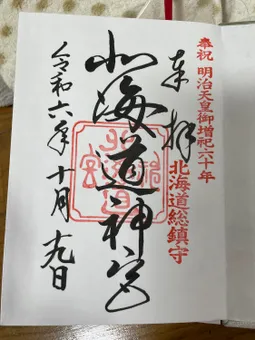 奉祝 明治天皇御増祀六十年
奉拝
北海道総鎮守
北海道神宮
令和六年十月十九日